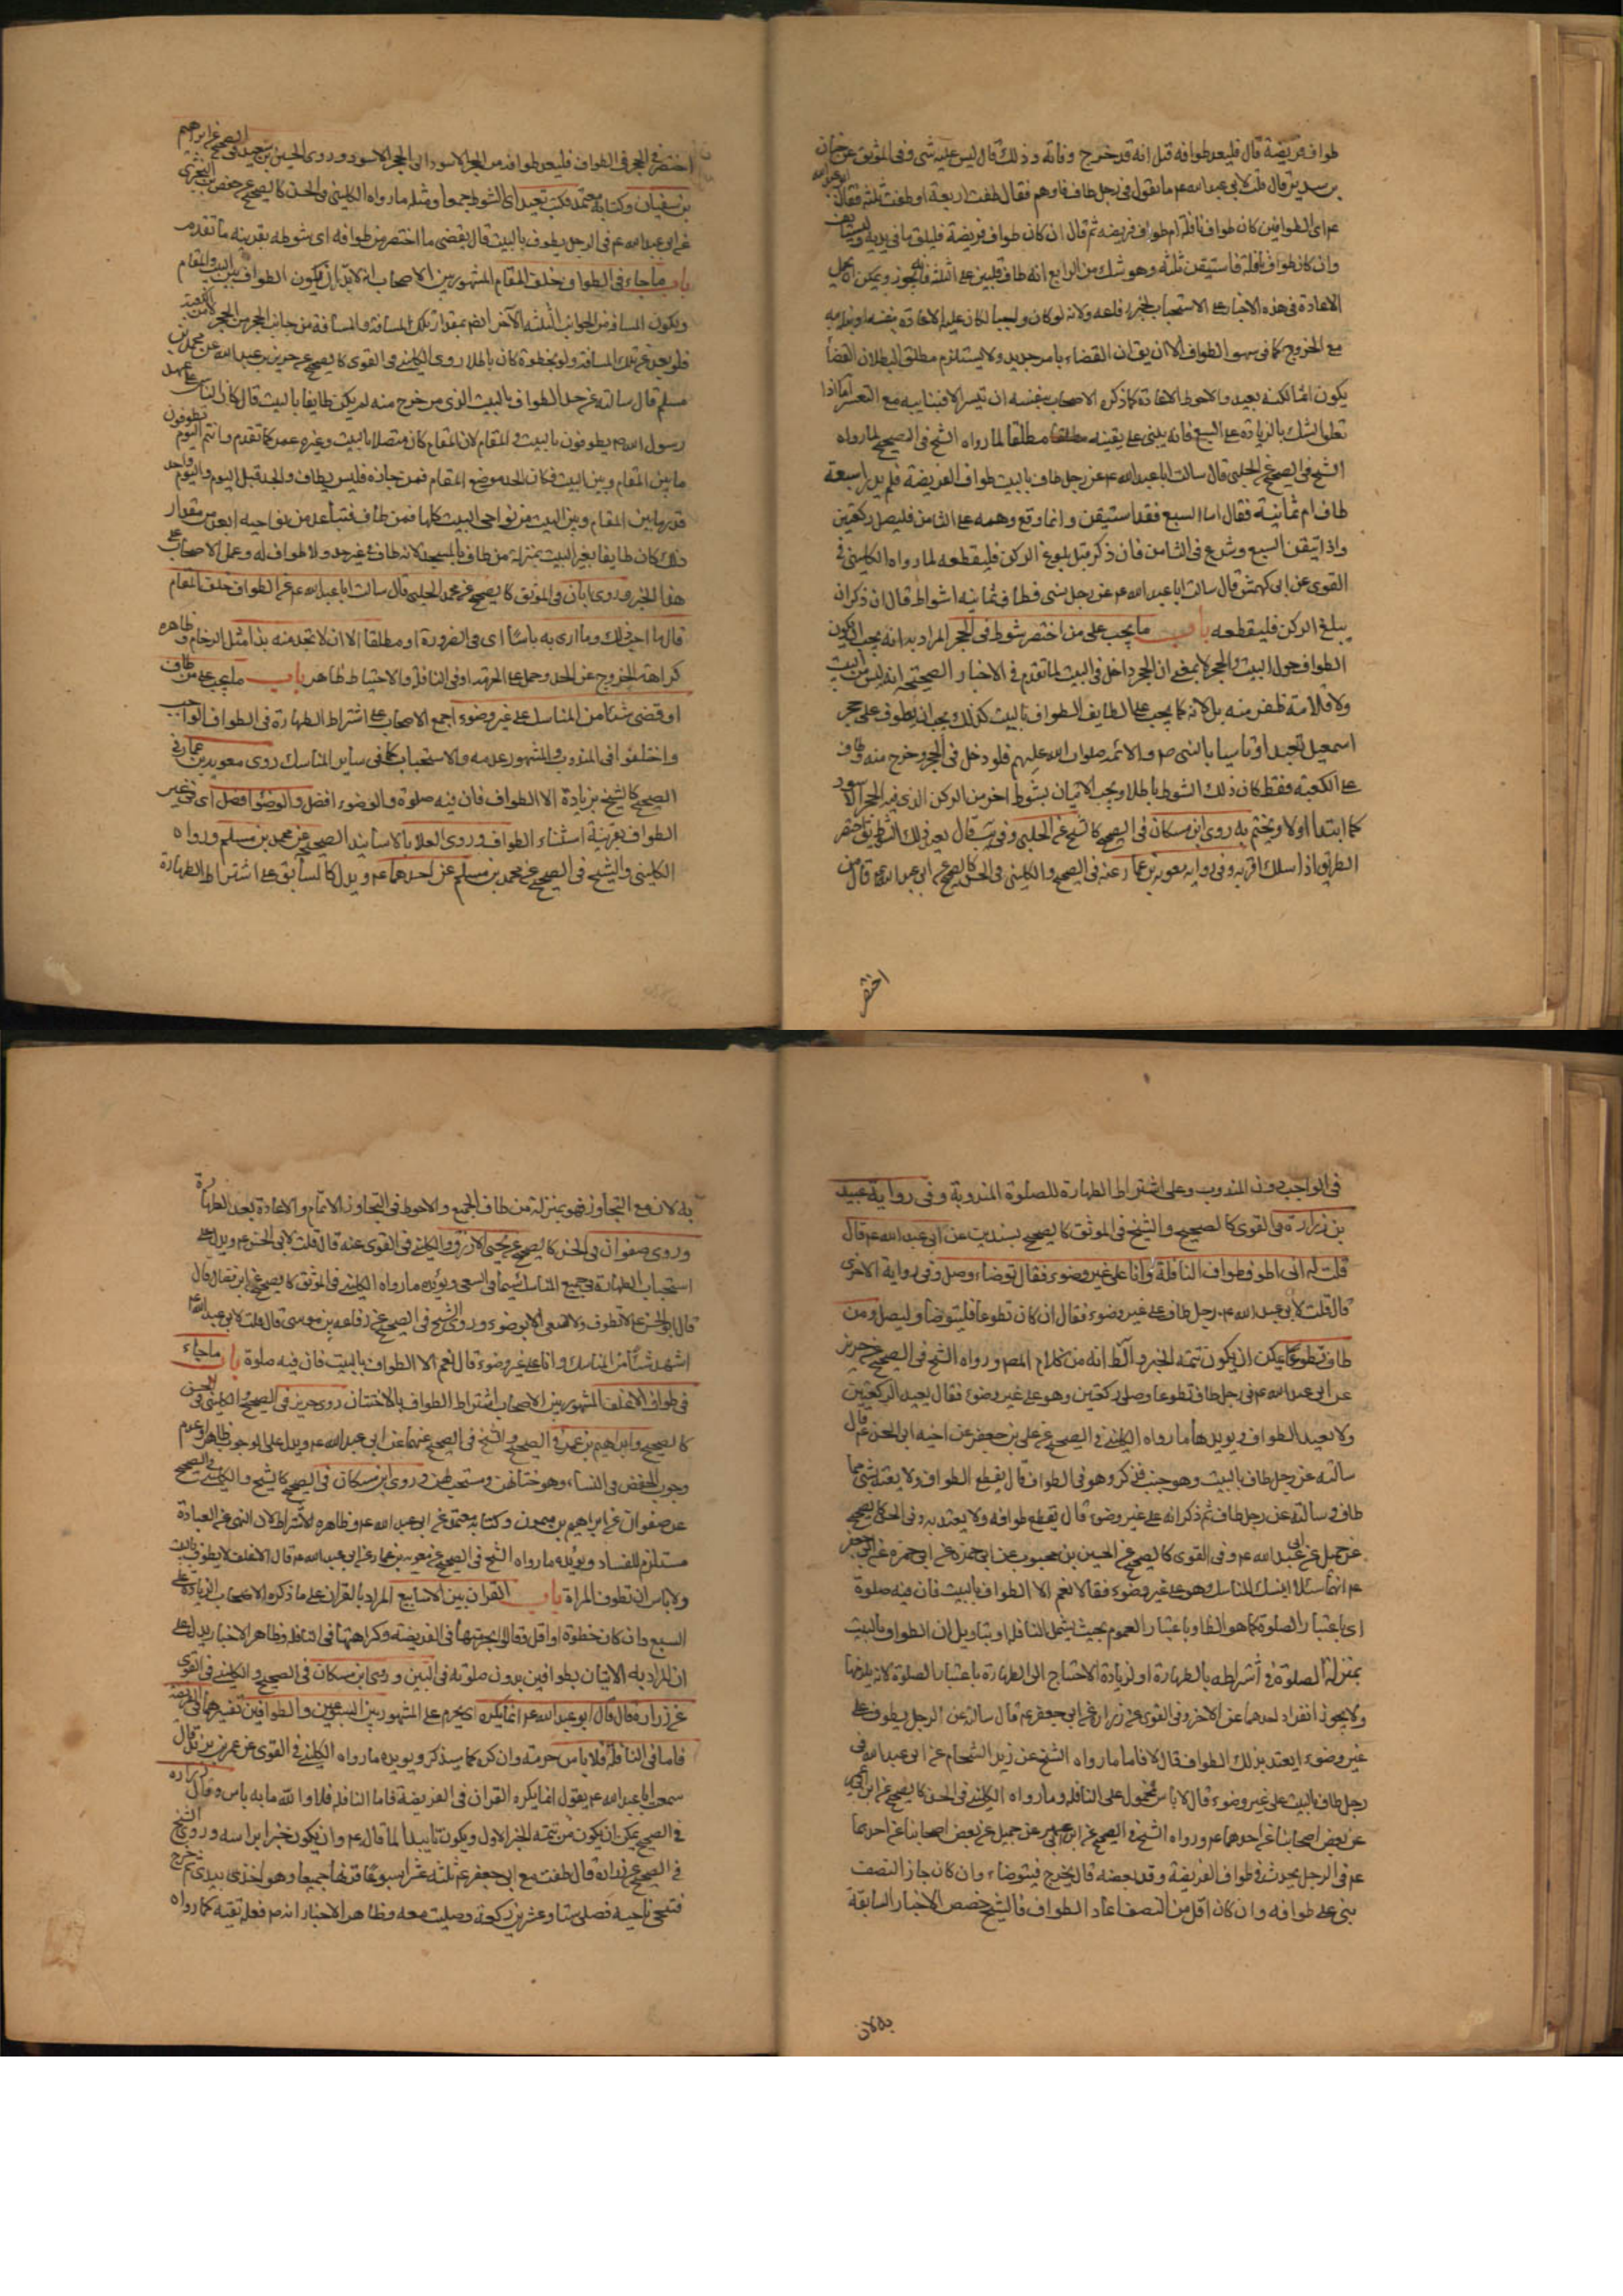 طواف فريضة قال فليعد طوافه قيل انه قد خرج وفاته وذلك قال ليس عليه شى وفى الموثق عن حنان
بن سدير قال قلت لابى عبد الله ع ما تقول فى رجل طاف فاوهم فقال طفت اربعة او طفت ثلثة فقال ابو عبد الله
ع اى الطوافين كان طواف نافلة ام طواف فريضه ثم قال ان كان طواف فريضة فليلق ما فى يديه وليستانف
وان كان طواف نافلة فاستيقن ثلثه وهو فى شك من الرابع انه طاف فليبن على الثلثه فانه يجوز ويمكن ان يحمل
الاعادة فى هذه الاخبار على الاستحباب لانه لو كان واجبا لكان عليه الاعادة بنفسه او بنايبه
مع الخروج كما فى سهو الطواف الا ان يق ان القضاء بامر جديد ولا يستلزم مطلق البطلان القضا
يكون لكنه بعيد والاحوط الاعادة كما ذكره الاصحاب بنفسه ان تيسر والا فبنايبه مع التعسر اما اذا
تعلق الشك بالزيادة على السبع فانه يبنى على يقينه مطلقا لما رواه الشيخ فى الصحيح لما رواه
الشيخ فى الصحيح عن الحلبى قال سالت ابا عبد الله ع عن رجل طاف بالبيت طواف الفريضة فلم يدر اسبعة
طاف ام ثمانية فقال اما السبع فقد استيقن وانما وقع وهمه على الثامن فليصل ركعتين
واذا تيقن السبع وشرع فى الثامن فان ذكر قبل بلوغ الركن فليقطعه لما رواه الكلينى فى
القوى عن ابى كهمش قال سالت ابا عبد الله ع عن رجل نسى فطاف ثمانيه اشواط قال ان ذكر ان
يبلغ الركن فليقطعه باب ما يجب على من اختصر شوطا فى الحجر المراد به انه يجب ان يكون
الطواف حول البيت والحجر لا بمعنى ان الحجر داخل فى البيت لما تقدم فى الاخبار الصحيحه انه ليس من البيت
ولا قلامة ظفر منه بل لانه كما يجب على الطايف الطواف بالبيت كذلك يجب ان يطوف على حجر
اسمعيل تعبدا وتاسيا بالنبى ص والائمه صلوات الله عليهم فلو دخل فى الحجر وخرج منه وطاف
على الكعبة فقط كان ذلك الشوط باطلا ويجب الاتيان بشوط اخر من الركن الذى فيه الحجر الاسود
كما ابتدا اولا ويختم به روى ابن مسكان فى الصحيح كالشيخ عن الحلبى قال يعيد ذلك الشوط اختصر
الطريق اذا سلك اقربه وفى رواية معوية بن عمار عنه فى الصحيح والكلينى فى الحسن كالصحيح عن ابى عبد الله ع قال من
اختصر
اختصر فى الحجر فى الطواف فليعد طوافه من الحجر الاسود الى الحجر الاسود وروى الحسين بن سعيد فى الصحيح عن ابراهيم
بن سفيان وكتابه معتمد فكتب تعيد اى الشوط جمعا ومثله ما رواه الكلينى فى الحسن كالصحيح عن حفص بن البخترى
عن ابى عبد الله ع فى الرجل يطوف بالبيت قال يقضى ما اختصر من طوافه اى شوطه بقرينه ما تقدم
باب ما جاء فى الطواف خلف المقام المشهور بين الاصحاب انه لا بد ان يكون الطواف بين البيت والمقام
ويكون المسافة من الجوانب الثلثه الآخر ايضم بمقدار تلك المسافة والمسافة من جانب الحجر من الحجر لا من الكعبة
فلو بعد عن تلك المسافة ولو بخطوة كان باطلا روى الكلينى فى القوى كالصحيح عن حريز بن عبد الله عن محمد بن
مسلم قال سالته عن حد الطواف بالبيت الذى من خرج منه لم يكن طايفا بالبيت قال كان الناس على عهد
رسول الله ص يطوفون بالبيت والمقام لان المقام كان متصلا بالبيت وغيره عمر كما تقدم وانتم اليوم تطوفون
ما بين المقام وبين البيت فكان الحد موضع المقام فمن جازه فليس بطائف والحد قبل اليوم واليوم واحد
قدر ما بين المقام وبين البيت من نواحى البيت كلها فمن طاف فتباعد من نواحيه ابعد من مقدار
ذلك كان طايفا بغير البيت بمنزلة من طاف بالمسجد لانه طاف فى غير حد ولا طواف له وعمل الاصحاب على
هذا الخبر وروى ابان فى الموثق كالصحيح عن محمد الحلبى قال سالت ابا عبد الله ع عن الطواف خلف المقام
قال ما احب ذلك وما ارى به باسا اى فى الضرورة او مطلقا الا ان لا تجد منه بدا مثل الزحام وظاهره
كراهة الخروج عن الحد وحمل على الحرمة او فى النافلة والاحتياط ظاهر باب ما يجب على من طاف
او قضى شيئا من المناسك على غير وضوء اجمع الاصحاب على اشتراط الطهارة فى الطواف الواجب
واختلفوا فى المندوب والمشهور عدمه والاستحباب كما فى ساير المناسك روى معوية بن عمار فى
الصحيح كالشيخ بزيادة الا الطواف فان فيه صلوة والوضوء افضل والوضوء افضل اى فى غير
الطواف بقرينة استثناء الطواف وروى العلا بالاسانيد الصحيحة عن محمد بن مسلم ورواه
الكلينى والشيخ فى الصحيح عن محمد بن مسلم عن احدهما ع ويدل كالسابق على اشتراط الطهارة
فى الواجب دون المندوب وعلى اشتراط الطهارة للصلوة المندوبة وفى رواية عبيد
بن زرارة فى القوى كالصحيح والشيخ فى الموثق كالصحيح بسندين عن ابى عبد الله ع قال
قلت له انى اطوف طواف النافلة وانا على غير وضوء فقال توضاء وصل وفى رواية الاخرى
قال قلت لابى عبد الله ع رجل طاف على غير وضوء فقال ان كان تطوعا فليتوضا وليصل ومن
طاف تطوعا يمكن ان يكون تتمة الخبر والظ انه من كلام المص ورواه الشيخ فى الصحيح عن حريز
عن ابى عبد الله ع فى رجل طاف تطوعا وصلى ركعتين وهو على غير وضوء فقال يعيد الركعتين
ولا يعيد الطواف ويؤيدها ما رواه الكلينى فى الصحيح عن على بن جعفر عن اخيه ابى الحسن ع قال
سالته عن رجل طاف بالبيت وهو جنب فذكر وهو فى الطواف قال يقطع الطواف ولا يعتد بشى مما
طاف وسالته عن رجل طاف ثم ذكر انه على غير وضوء قال يقطع طوافه ولا يعتد به وفى الحسن كالصحيح
عن جميل عن ابى عبد الله ع وفى القوى كالصحيح عن الحسين بن محبوب عن ابى حمزة عن ابى جعفر
ع انهما سئلا اينسك المناسك وهو على غير وضوء فقالا نعم الا الطواف بالبيت فان فيه صلوة
اى باعتبار الصلوة كما هو الظ او باعتبار العموم بحيث يشمل النافلة او بتاويل ان الطواف بالبيت
بمنزلة الصلوة فى اشتراطه بالطهارة او لزيادة الاحتياج الى الطهارة باعتبار الصلوة لانه يلزمها
ولا يجوز انفراد احدهما عن الاخر وفى القوى عن زرارة عن ابى جعفر ع قال سالته عن الرجل يطوف على
غير وضوء ايعتد بذلك الطواف قال لا فاما ما رواه الشيخ عن زيد الشحام عن ابى عبد الله ع فى
رجل طاف بالبيت على غير وضوء قال لا باس فمحمول على النافلة وما رواه الكلينى فى الحسن كالصحيح عن ابن ابى عمير
عن بعض اصحابنا عن احدهما ع ورواه الشيخ فى الصحيح عن ابن ابى عمير عن جميل عن بعض اصحابنا عن احدهما
ع فى الرجل يحدث فى طواف الفريضة وقد طاف بعضه قال يخرج فيتوضاء وان كان جاز النصف
بنى على طوافه وان كان اقل من النصف اعاد الطواف فالشيخ خصص الاخبار السابقة
به لان
به لان مع التجاوز فهو بمنزلة من طاف الجميع والاحوط فى التجاوز الاتمام والاعادة بعد الطهارة
وروى صفوان فى الحسن كالصحيح عن يحيى الازرق والكلينى فى القوى عنه قال قلت لابى الحسن ع ويدل على
استحباب الطهارة فى جميع المناسك سيما فى السعى ويؤيده ما رواه الكلينى فى الموثق كالصحيح عن ابن فضال قال
قال ابو الحسن ع لا تطوف ولا تسعى الا بوضوء وروى الشيخ فى الصحيح عن رفاعه بن موسى قال قلت لابى عبد الله ع
اشهد شيئا من المناسك وانا على غير وضوء قال نعم الا الطواف بالبيت فان فيه صلوة باب ما جاء
فى طواف الاغلف المشهور بين الاصحاب اشتراط الطواف بالاختتان روى حريز فى الصحيح والكلينى فى الحسن
كالصحيح وابراهيم بن عمر فى الصحيح والشيخ فى الصحيح عنهما عن ابى عبد الله ع ويدل على الوجوب ظاهرا وعدم
وجوب الخفض فى النساء وهو ختانهن ومستحب لهن وروى ابن مسكان فى الصحيح كالشيخ والكلينى فى الصحيح
عن صفوان عن ابراهيم بن ميمون وكتابه معتمد عن ابى عبد الله ع وظاهره الاشتراط لان النهى عن العبادة
مستلزم للفساد ويؤيده ما رواه الشيخ فى الصحيح عن معوية بن عمار عن ابى عبد الله ع قال الاغلف لا يطوف بالبيت
ولا باس ان تطوف المراة باب القران بين الاسابيع المراد بالقران على ما ذكره الاصحاب الزيادة على
السبع وان كان خطوة او اقل وقالوا بحرمتها فى الفريضة وكراهتها فى النافلة وظاهر الاخبار يدل على
ان المراد به الاتيان بطوافين بدون صلوته فى البين وروى ابن مسكان فى الصحيح والكلينى فى القوى
عن زرارة قال قال ابو عبد الله ع انما يكره اى يحرم على المشهور بين السبعين والطوافين تفسيرهما فى الفريضة
فاما فى النافلة فلا باس حرمته وان كره كما سيذكر ويؤيده ما رواه الكلينى فى القوى عن عمر بن يزيد قال
سمعت ابا عبد الله ع يقول انما يكره القران فى الفريضة فاما النافلة فلا والله ما به باس وقال زرارة
فى الصحيح يمكن ان يكون من تتمة الخبر الاول ويكون تاييدا لما قال ع وان يكون خبرا براسه وروى الشيخ
فى الصحيح عن زرارة قال طفت مع ابى جعفر ع ثلثه عشر اسبوعا قرنها جميعا وهو اخذ بيدى ثم خرج
فتنحى ناحية فصلى ستا وعشرين ركعة وصليت معه وظاهر الاخبار انه ع فعله تقيه كما رواه